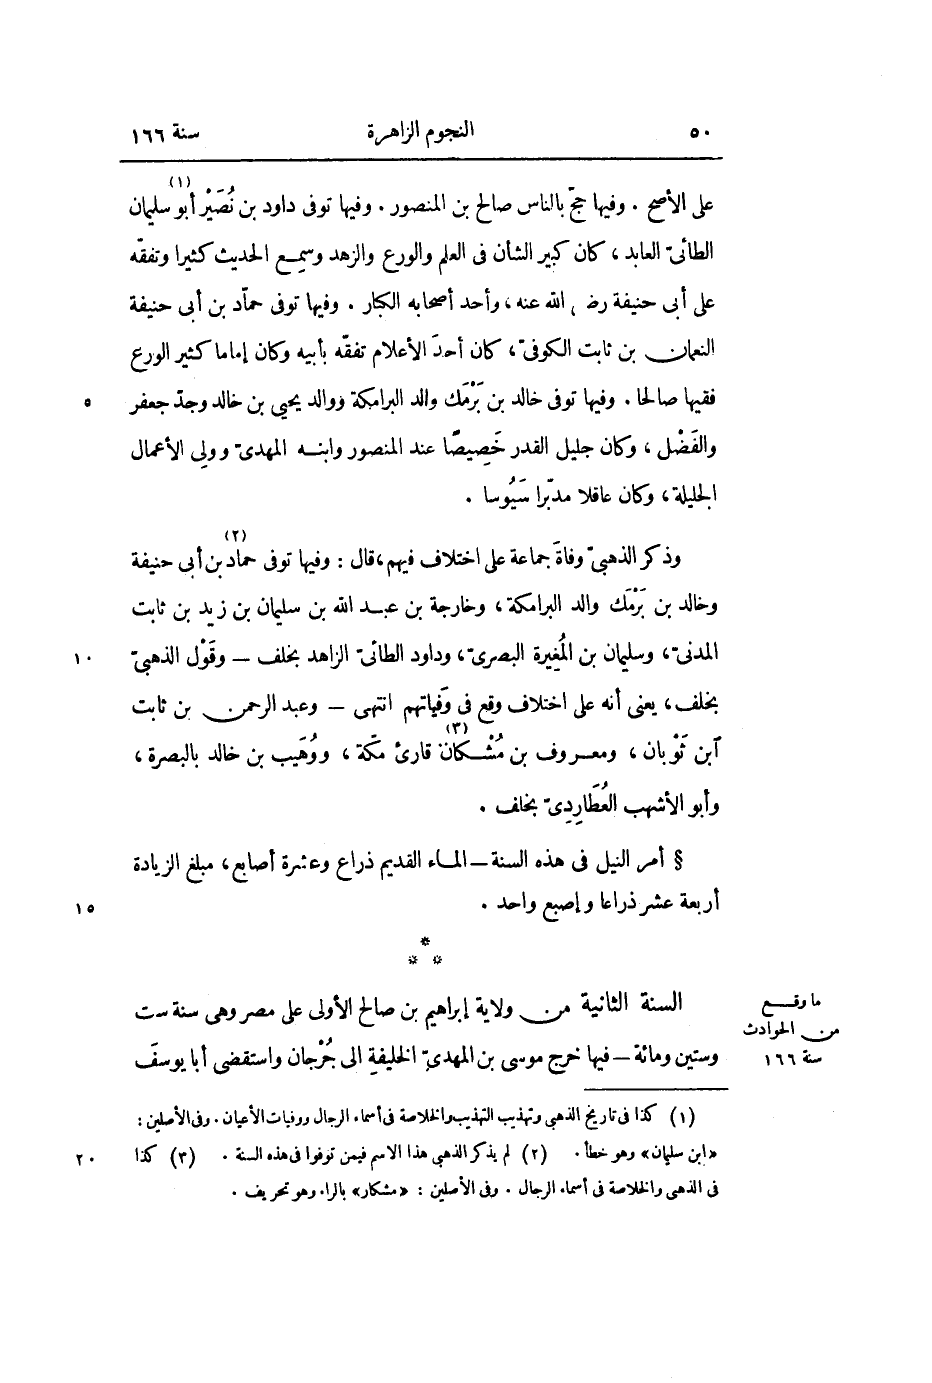 ٥٠ النجوم الزاهرة سنة ١٦٦
على الأصح . وفيها حجّ بالناس صالح بن المنصور . وفيها توفى داود بن نُصَيْر (١) أبو سليمان
الطائىّ العابد ، كان كبير الشأن فى العلم والورع والزهد وسمِع الحديث كثيرا وتفقّه
على أبى حنيفة رضى الله عنه ، وأحد أصحابه الكبار . وفيها توفى حمّاد بن أبى حنيفة
النعمان بن ثابت الكوفىّ ، كان أحدَ الأعلام تفقّه بأبيه وكان إماما كثير الورع
فقيها صالحا . وفيها توفى خالد بن بَرْمَك والد البرامكة ووالد يحيى بن خالد وجدّ جعفر ٥
والفَضْل ، وكان جليل القدر خَصِيصًا عند المنصور وابنه المهدىّ وولِى الأعمال
الجليلة ، وكان عاقلا مدبّرا سَيُوسا .
وذكر الذهبىّ وفاةَ جماعة على اختلاف فيهم ، قال : وفيها توفى حماد (٢) بن أبى حنيفة
وخالد بن بَرْمَك والد البرامكة ، وخارجة بن عبد الله بن سليمان بن زيد بن ثابت
المدنىّ ، وسليمان بن المُغِيرة البصرىّ ، وداود الطائىّ الزاهد بخلف — وقَوْل الذهبىّ ١٠
بخلف ، يعنى أنه على اختلاف وقع فى وَفَياتهم انتهى — وعبد الرحمن بن ثابت
آبن ثَوْبان ، ومعروف بن مُشْكان (٣) قارئ مكّة ، ووُهَيب بن خالد بالبصرة ،
وأبو الأشهب العُطَارِدِىّ بخلف .
§ أمر النيل فى هذه السنة — الماء القديم ذراع وعشرة أصابع ، مبلغ الزيادة
أربعة عشر ذراعا وإصبع واحد . ١٥
*
* *
السنة الثانية من ولاية إبراهيم بن صالح الأولى على مصر وهى سنة ست
وستين ومائة — فيها خرج موسى بن المهدىّ الخليفة الى جُرْجان واستقضى أبا يوسفَ
ما وقع
من الحوادث
سنة ١٦٦
(١) كذا فى تاريخ الذهبى وتهذيب التهذيب والخلاصة فى أسماء الرجال ووفيات الأعيان . وفى الأصلين :
«ابن سليمان» وهو خطأ . (٢) لم يذكر الذهبى هذا الاسم فيمن توفوا فى هذه السنة . (٣) كذا ٢٠
فى الذهبى والخلاصة فى أسماء الرجال . وفى الأصلين : «مشكار» بالراء وهو تحريف .